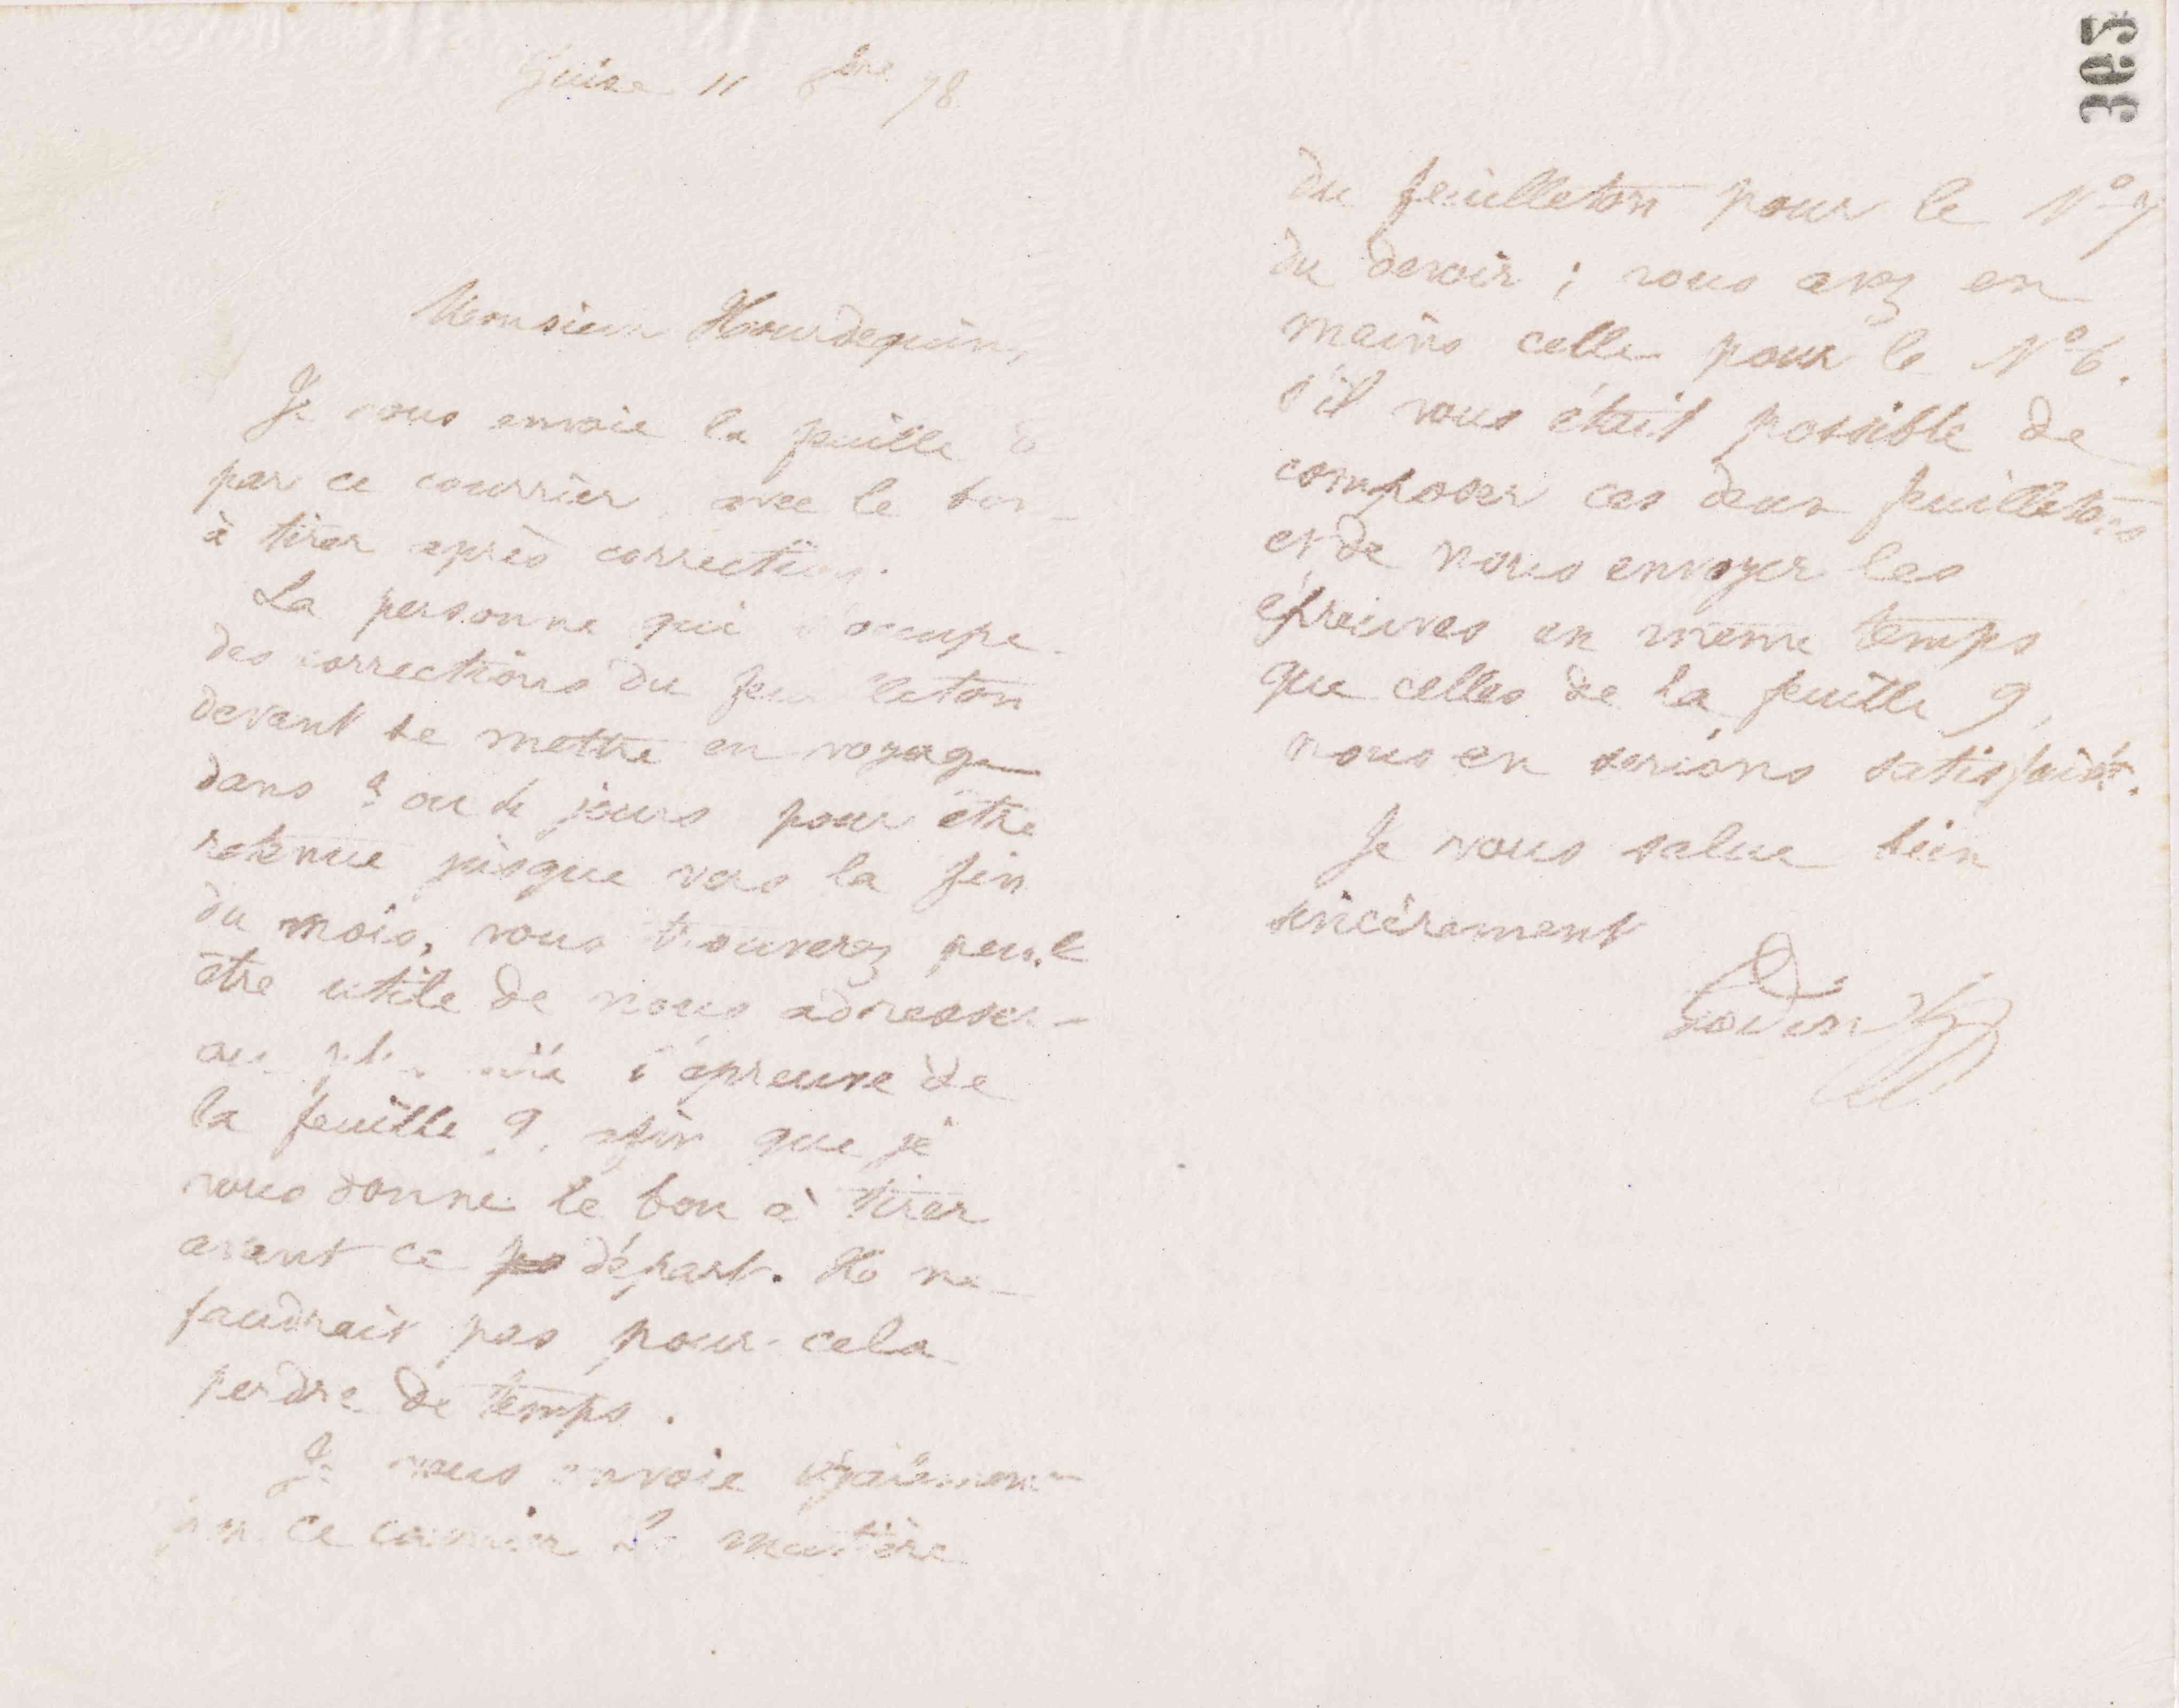 Guise 11 8bre 78
Monsieur Hourdequin,
Je vous envoie la feuille 8
par ce courrier, avec le bon
à tirer après correction.
La personne qui s'occupe
des corrections du feuilleton
devant se mettre en voyage
dans 3 ou 4 jours pour être
retenue jusque vers la fin
du mois, vous trouverez peut
être utile de nous adresser
au plus vite l'épreuve de
la feuille 9, afin que je
vous donne le bon à tirer
avant ce départ. Il ne
faudrait pas pour cela
perdre de temps.
Je vous envoie également
par ce courrier la matière
du feuilleton pour le N° 7
du devoir ; vous avez en
mains celle pour le N° 6.
s'il vous était possible de
composer ces deux feuilletons
et de nous envoyer les
épreuves en même temps
que celles de la feuille 9,
nous en serions satisfaits.
Je vous salue bien
sincèrement
Godin
365